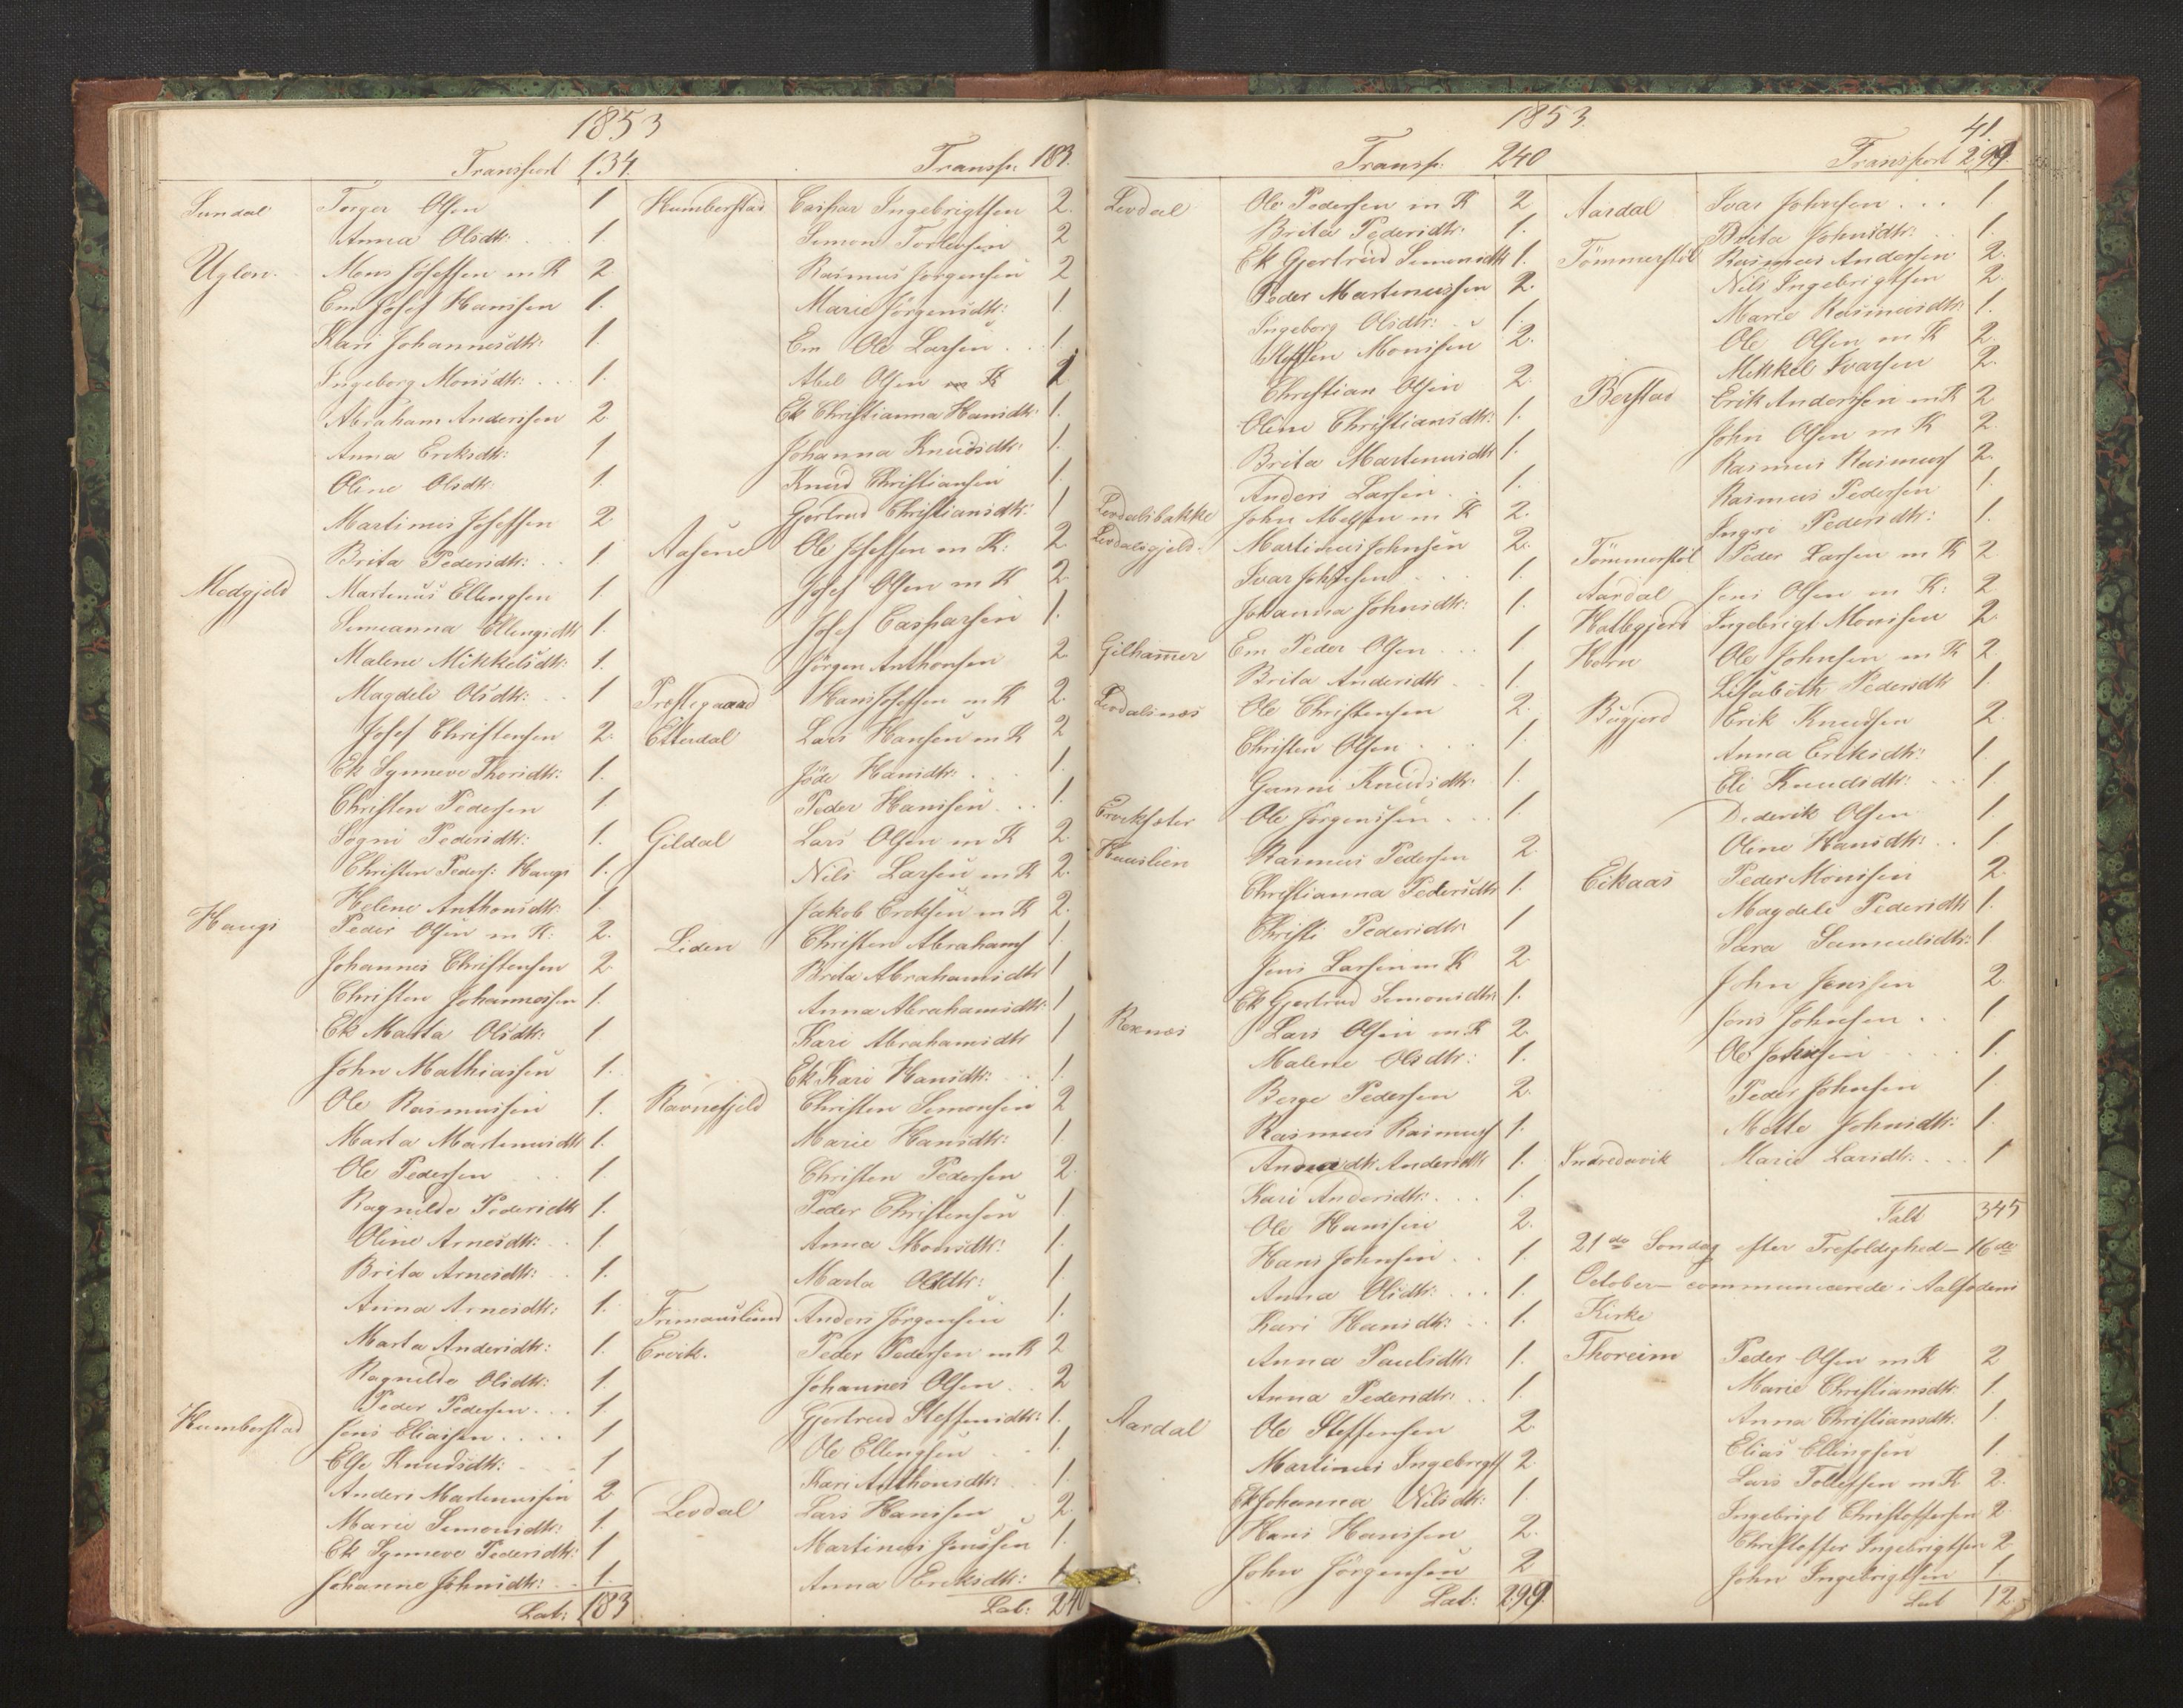 1853
Transport 134.
Sundal Torger Olsen 1
Anna Olsdtr: 1.
Uglen. Mons Josefsen m K 2
Em Josef Hansen 1.
Kari Johannesdtr: 1.
Ingeborg Monsdtr: 1.
Abraham Andersen 2
Anna Eriksdtr: 1
Oline Olsdtr: 1.
Martinus Josefsen 2
Brita Pedersdtr: 1
Medgjeld Martinus Ellingsen 1.
Simeanna Ellingsdtr 1.
Malene Mikkelsdtr: 1.
Magdele Olsdtr: 1
Josef Christensen 2.
Ek Synneve Thorsdtr: 1.
Christen Pedersen 1.
Sogni Pedersdtr: 1.
Christen Peders: Haugs 1.
Helene Anthonsdtr 1.
Haugs Peder Olsen m K: 2.
Johannes Christensen 2
Christen Johannessen 1.
Ek Marta Olsdtr: 1
John Mathiassen 1.
Ole Rasmussen 1.
Marta Martinusdtr 1.
Ole Pedersen 1.
Ragnilde Pedersdtr 1.
Oline Arnesdtr: 1
Brita Arnesdtr: 1.
Anna Arnesdtr: 1.
Marta Andersdtr: 1.
Ragnilde Olsdtr: 1.
Peder Pedersen 1.
Humberstad Jens Eliasen 1
Else Knudsdtr: 1
Anders Martinussen 2
Marie Simonsdtr: 1.
Ek Synneve Pedersdtr: 1
Johanne Johnsdtr: 1.
Lat: 183
Transp: 183.
Humberstad Caspar Ingebrigtsen 2.
Simon Torleifsen 2
Rasmus Jørgensen 2
Marie Jørgensdtr: 1
Em Ole Larsen 1
Abel Olsen m K 2
Ek Christianna Hansdtr: 1.
Johanna Knudsdtr: 1.
Knud Christiansen 1
Gjertrud Christiansdtr: 1
Aasene Ole Josefsen m K: 2
Josef Olsen m K 2
Josef Casparsen 1.
Jørgen Anthonsen 2
Prestegaard Hans Josefsen m K 2.
Etterdal Lars Hansen m K 2
Jøde Hansdtr: 1.
Peder Hansen 1.
Gildal Lars Olsen m K 2
Nils Larsen m K 2.
Jakob Eriksen m K 2.
Liden Christen Abrahams 1
Brita Abrahamsdtr 1
Anna Abrahamsdtr: 1
Kari Abrahamsdtr 1
Ek Kari Hansdtr: 1.
Ravnefjeld Christen Simonsen 2
Marie Hansdtr: 1
Christen Pedersen 2.
Peder Christensen 1.
Anna Monsdtr: 1.
Marta Olsdtr: 1
Frimanslund Anders Jørgensen 1.
Ervik. Peder Pedersen m K 2
Johannes Olsen 2
Gjertrud Steffensdtr: 1.
Ole Ellingsen 1.
Kari Anthonsdtr: 1.
Levdal Lars Hansen 2
Martinus Jensen 1.
Anna Eriksdtr: 1.
Lat: 240
1853.
41.
Transp: 240
Levdal Ole Pedersen m K 2
Brita Pedersdtr: 1.
Ek Gjertrud Simonsdtr 1.
Peder Martinussen 2.
Ingeborg Olsdtr: 1.
Steffen Monsen 2.
Christian Olsen 2.
Oline Christiansdtr: 1.
Brita Martinusdtr 1.
Anders Larsen 1.
Levdalsbakke John Nielsen m K 2.
Levdalsgjeld. Martinus Johnsen 2.
Ivar Johnsen 1.
Johanna Johnsdtr: 1.
Gilhammer Em Peder Olsen 1
Brita Andersdtr 1.
Levdalsnes Ole Christensen 2.
Christen Olsen 1.
Ganni Knudsdtr: 1.
Ervikseter Ole Jørgensen 1.
Kuuslien Rasmus Pedersen 2
Christianna Pedersdtr 1.
Christi Pedersdtr 1
Jens Larsen m K 2
Ek Gjertrud Simonsdtr 1.
Rexnes Lars Olsen m K 2.
Malene Olsdtr: 1.
Berge Pedersen 2.
Rasmus Rasmus 1.
Anna Andersdtr 1.
Kari Andersdtr: 1.
Ole Hansen 2.
Hans Johnsen 1.
Anna Olsdtr: 1.
Kari Hansdtr: 1.
Anna Paulsdtr 1.
Anna Pedersdtr: 1.
Aardal Ole Steffensen 2
Martinus Ingebrigts 2
Ek Johanna Nilsdtr: 1
Hans Hansen 2.
John Jørgensen 2
Lat: 299
Transport 299.
Aardal Ivar Johnsen 1.
Brita Johnsdtr: 1.
Tømmerstøl Rasmus Andersen 2.
Nils Ingebrigtsen 2
Marie Rasmusdtr: 1.
Ole Olsen m K 2
Mikkel Ivarsen 2.
Berstad Erik Andersen m K 2
John Olsen m K 2.
Rasmus Rasmus 2.
Rasmus Pedersen 1.
Ingri Pedersdtr: 1.
Tømmerstøl Peder Larsen m K 2
Aardal Jens Olsen m K: 2
Hatlegjerd Ingebrigt Monsen 2.
Horn Ole Johnsen m K 2
Lisabeth Pedersdtr 1.
Bugjerd Erik Knudsen 2.
Anna Eriksdtr: 1.
Eli Knudsdtr: 1.
Diderik Olsen 1.
Oline Hansdtr: 1
Eikaas Peder Monsen 2.
Magdele Pedersdtr 1.
Sara Samuelsdtr: 1
John Jensen 2.
Jens Johnsen 1
Ole Johnsen 1.
Peder Johnsen 1
Mette Johnsdtr: 1.
Indrevik Marie Larsdtr: 1
Ialt 345
21de Søndag efter Trefoldighed - 16de
October communicerede i Aalfodens
Kirke
Thoreim Peder Olsen m K 2
Marie Christiansdtr: 1.
Anna Christiansdtr: 1.
Elias Ellingsen 1.
Lars Tollefsen m K 2.
Ingebrigt Christoffersen 2
Christoffer Ingebrigtsen 2
John Ingebrigtsen 1
Lat 12.